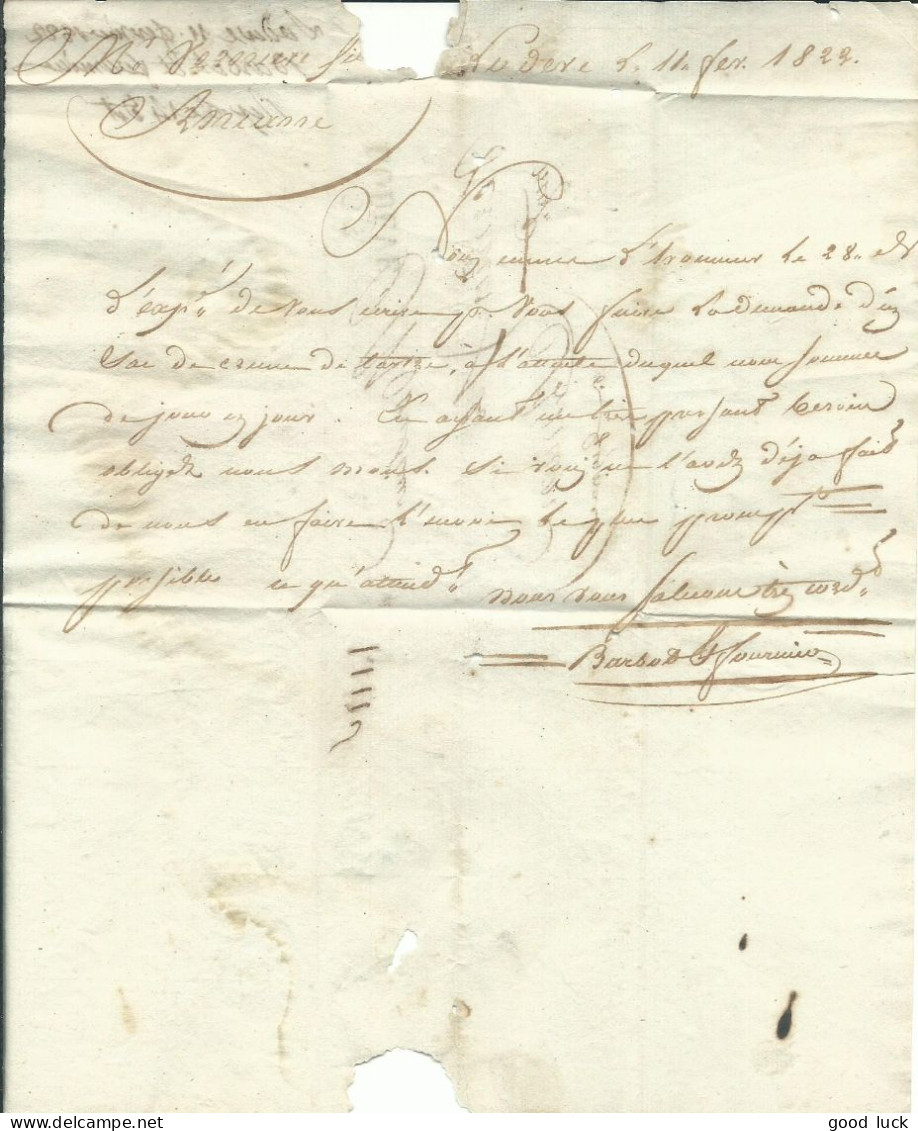 Lodeve L. 11. fev. 1822.
Nous eumes l'honneur le 28.
de vous ecrire p. vous faire la demande d'un
Sac de creme de tartre, à l'attente duquel nous sommes
de jour en jour. En ayant un très pressant besoin
obligez nous mons. si vous ne l'avez déja fait
de nous en faire l'envoi le plus prompt
possible ce qu'attend.t
nous vous saluons très cord.t
Barbot & Fournier
good luck